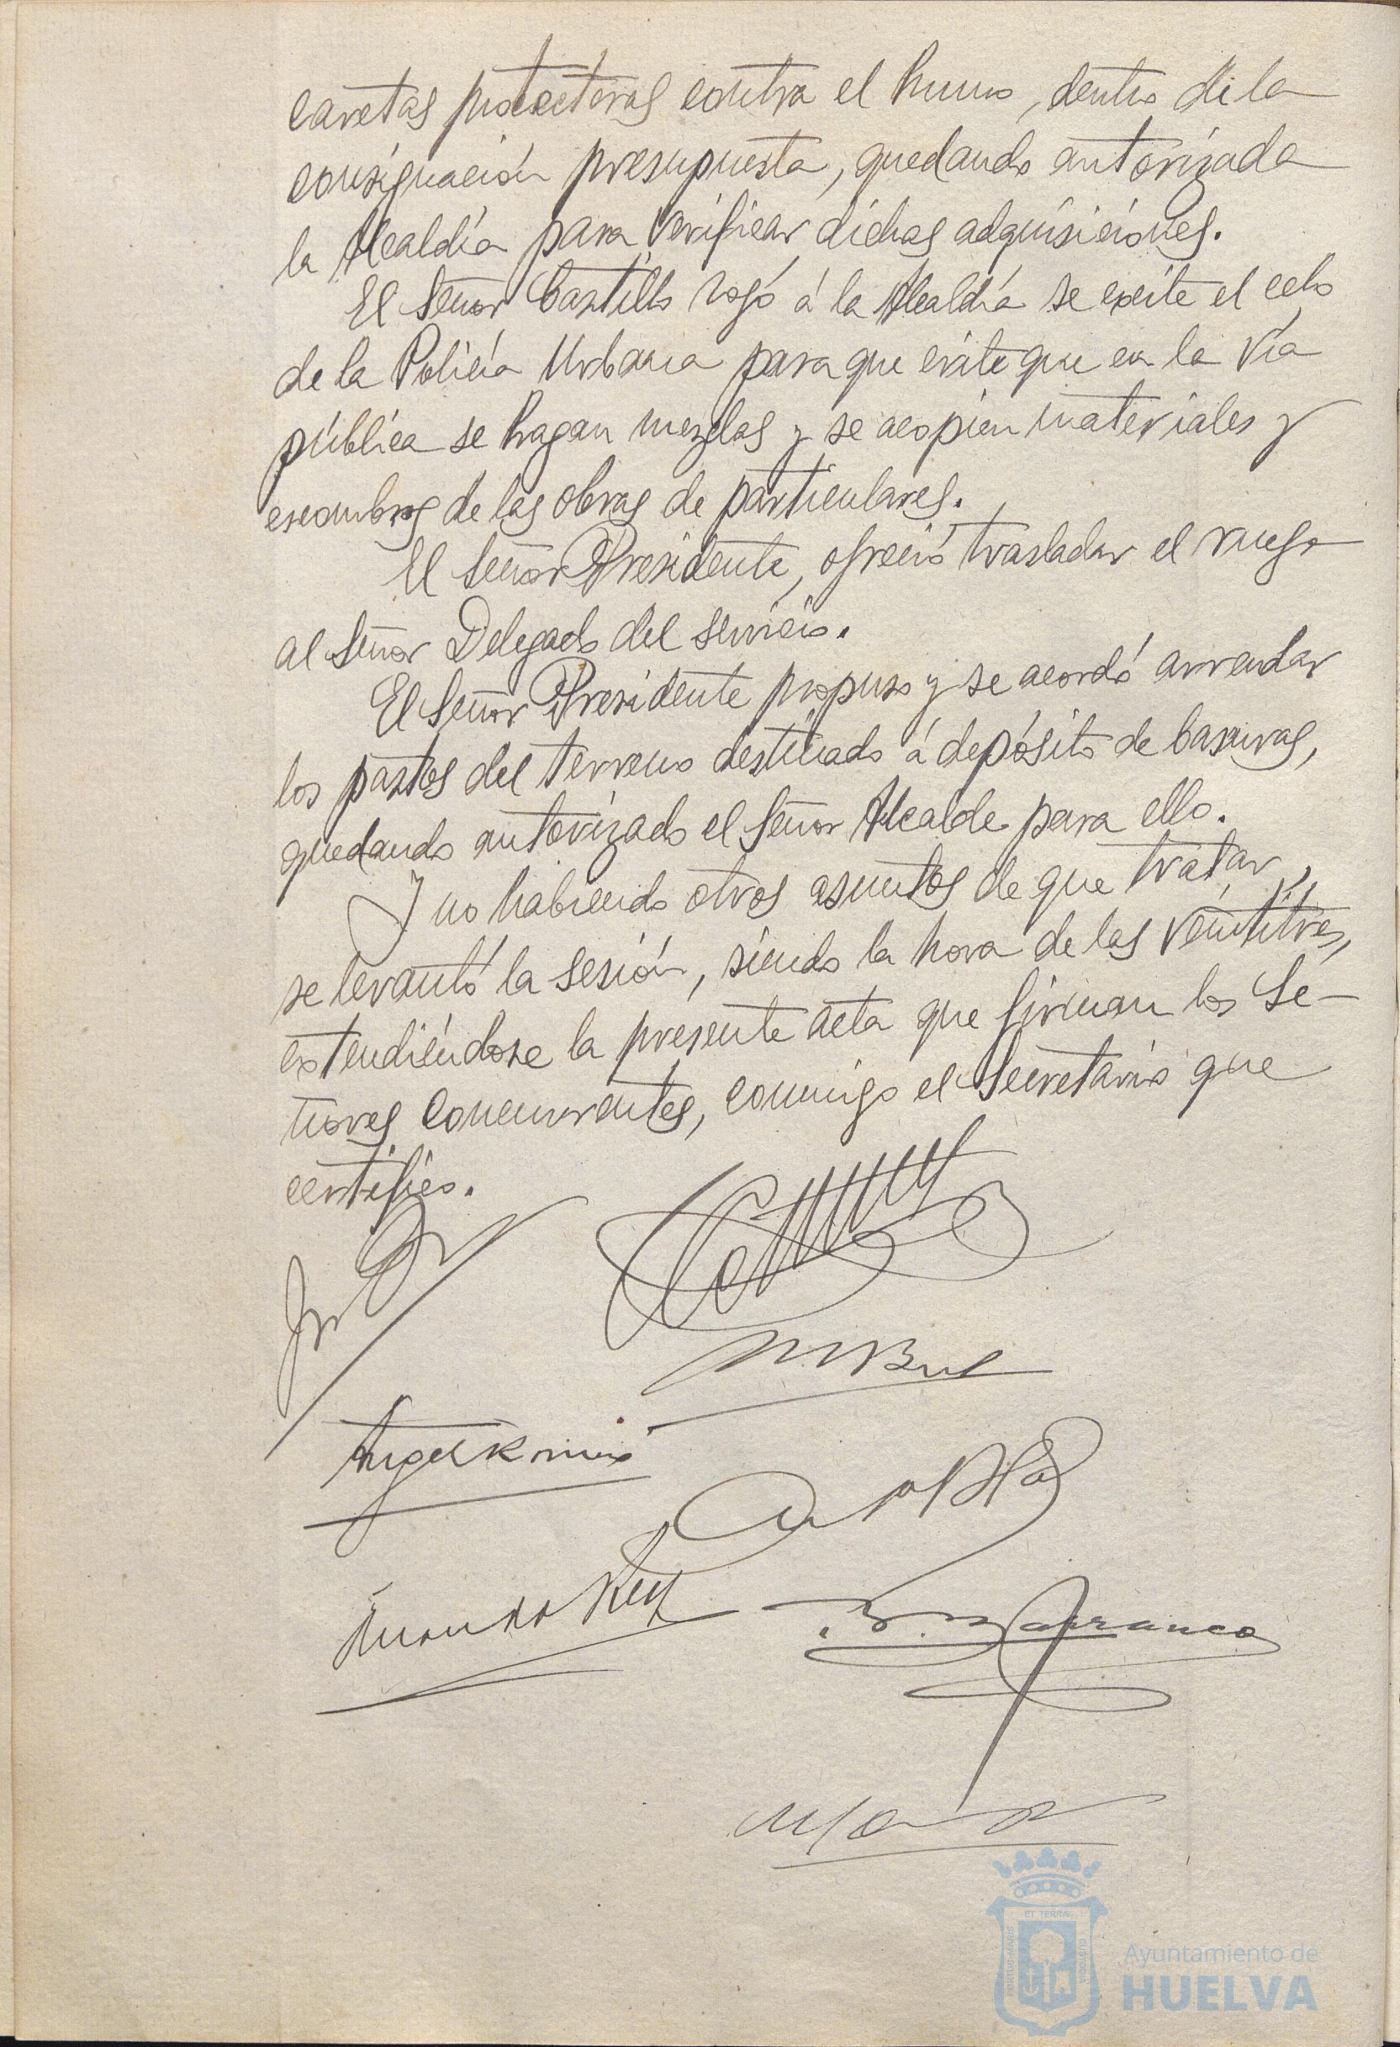 caretas protectoras contra el humo, dentro de la
consignación presupuesta, quedando autorizada
la Alcaldía para verificar dichas adquisiciones.
El Señor Castillo rogó á la Alcaldía se excite el celo
de la Policía Urbana para que evite que en la vía
pública se hagan mezclas y se acopien materiales y
escombros de las obras de particulares.
El Señor Presidente, ofreció trasladar el ruego
al Señor Delegado del servicio.
El Señor Presidente propuso y se acordó arrendar
los pastos del terreno destinado á depósito de basuras,
quedando autorizado el Señor Alcalde para ello.
Y no habiendo otros asuntos de que tratar,
se levantó la sesión, siendo la hora de las veintitres,
extendiéndose la presente acta que firman los Se-
ñores concurrentes, conmigo el Secretario que
certifico.
Ayuntamiento de
HUELVA